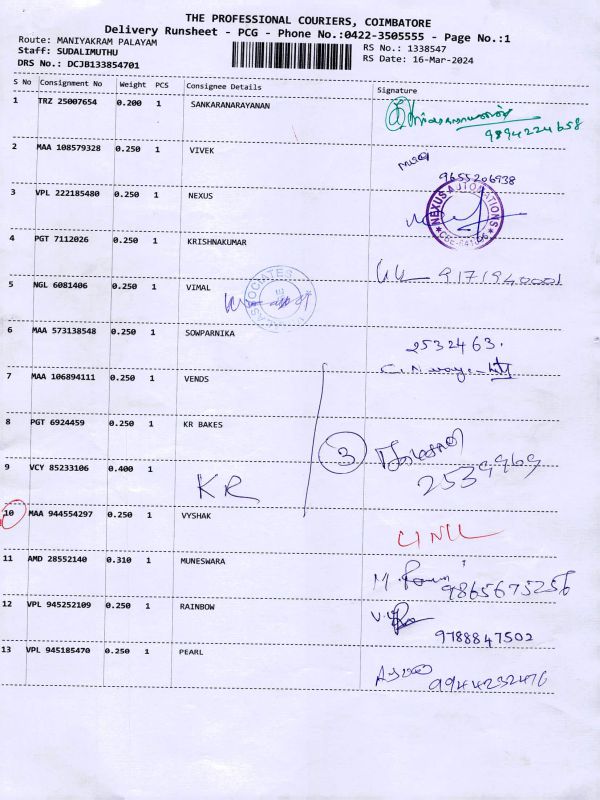 THE PROFESSIONAL COURIERS, COIMBATORE
Delivery Runsheet - PCG - Phone No.:0422-3505555 - Page No.:1
Route: MANIYAKRAM PALAYAM
RS No.: 1338547
Staff: SUDALIMUTHU
RS Date: 16-Mar-2024
DRS No.: DCJB133854701
S No Consignment No Weight PCS Consignee Details Signature
1 TRZ 25007654 0.200 1 SANKARANARAYANAN
9894224658
2 MAA 108579328 0.250 1 VIVEK
9655206938
3 VPL 222185480 0.250 1 NEXUS
NEXUS AUTOMATIONS
4 PGT 7112026 0.250 1 KRISHNAKUMAR
5 NGL 6081406 0.250 1 VIMAL
ASSOCIATES
6 MAA 573138548 0.250 1 SOWPARNIKA
2532463.
7 MAA 106894111 0.250 1 VENDS
8 PGT 6924459 0.250 1 KR BAKES
3
9 VCY 85233106 0.400 1 KR
2539969
10 MAA 944554297 0.250 1 VYSHAK
11 AMD 28552140 0.310 1 MUNESWARA
9865675256
12 VPL 945252109 0.250 1 RAINBOW
9788847502
13 VPL 945185470 0.250 1 PEARL
9944232476